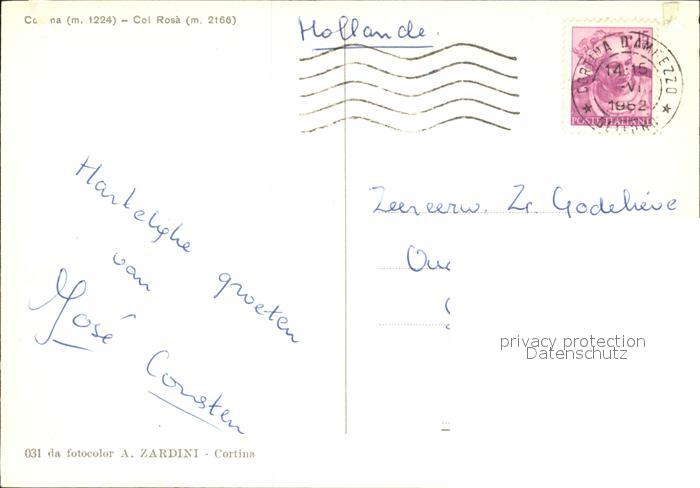 Co na (m. 1224) – Col Rosà (m. 2166)
Hollande.
15
CORTINA D'AMPEZZO
14-15
VI
1962
POSTE ITALIANE
Hartelijke groeten
van
José Consten
Zeereerw. Zr. Godeliéve
Oud
privacy protection
Datenschutz
031 da fotocolor A. ZARDINI - Cortina